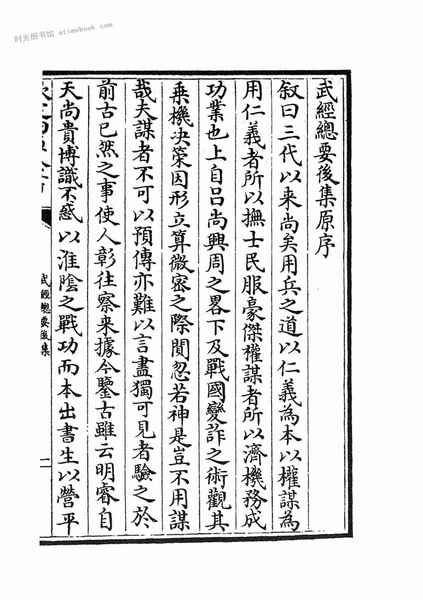 时光图书馆 etimebook.com
武經總要後集原序
叙曰三代以来尚矣用兵之道以仁義為本以權謀為
用仁義者所以撫士民服豪傑權謀者所以濟機務成
功業也上自吕尚興周之畧下及戰國變詐之術觀其
乗機决策因形立算微密之際閒忽若神是豈不用謀
哉夫謀者不可以預傳亦難以言盡獨可見者驗之於
前古已然之事使人彰往察来據今鑒古雖云明睿自
天尚貴博識不惑以淮陰之戰功而本出書生以營平
武經總要後集
一